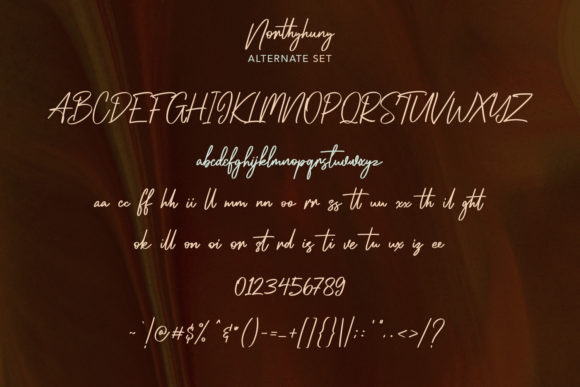 Northyhuny
ALTERNATE SET
ABCDEFGHIJKLMNOPQRSTUVWXYZ
abcdefghijklmnopqrstuvwxyz
aa cc ff hh ii ll mm nn oo rr ss tt uu xx th il ght
ok ill on oi or st rd is ti ve tu ux iz ee
0123456789
~`!@#$%^&*()-=_+[]{}\|;:'",.<>/?